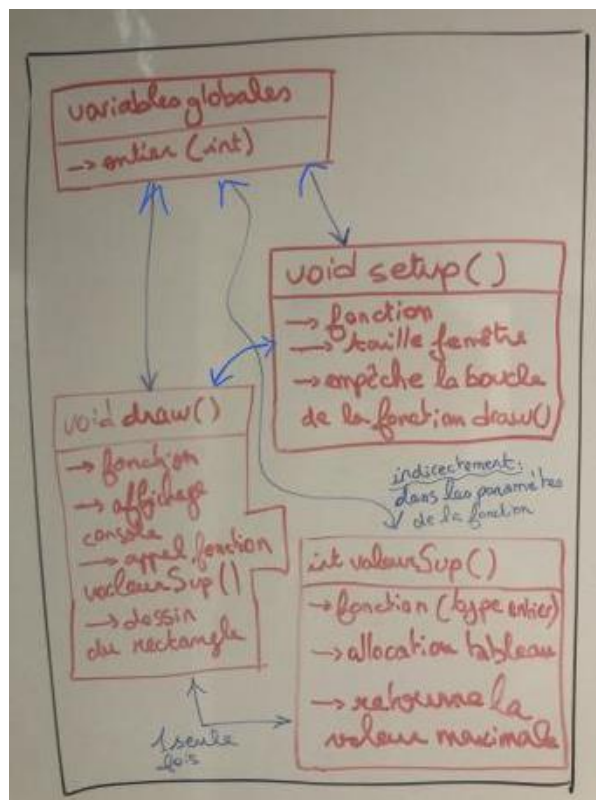 variables globales
→ entier (int)
void setup()
→ fonction
→ taille fenêtre
→ empêche la boucle
de la fonction draw()
void draw()
→ fonction
→ affichage
console
→ appel fonction
valeurSup()
→ dessin
du rectangle
indirectement:
dans les paramètres
de la fonction
int valeurSup()
→ fonction (type entier)
→ allocation tableau
→ retourne la
valeur maximale
1 seule
fois